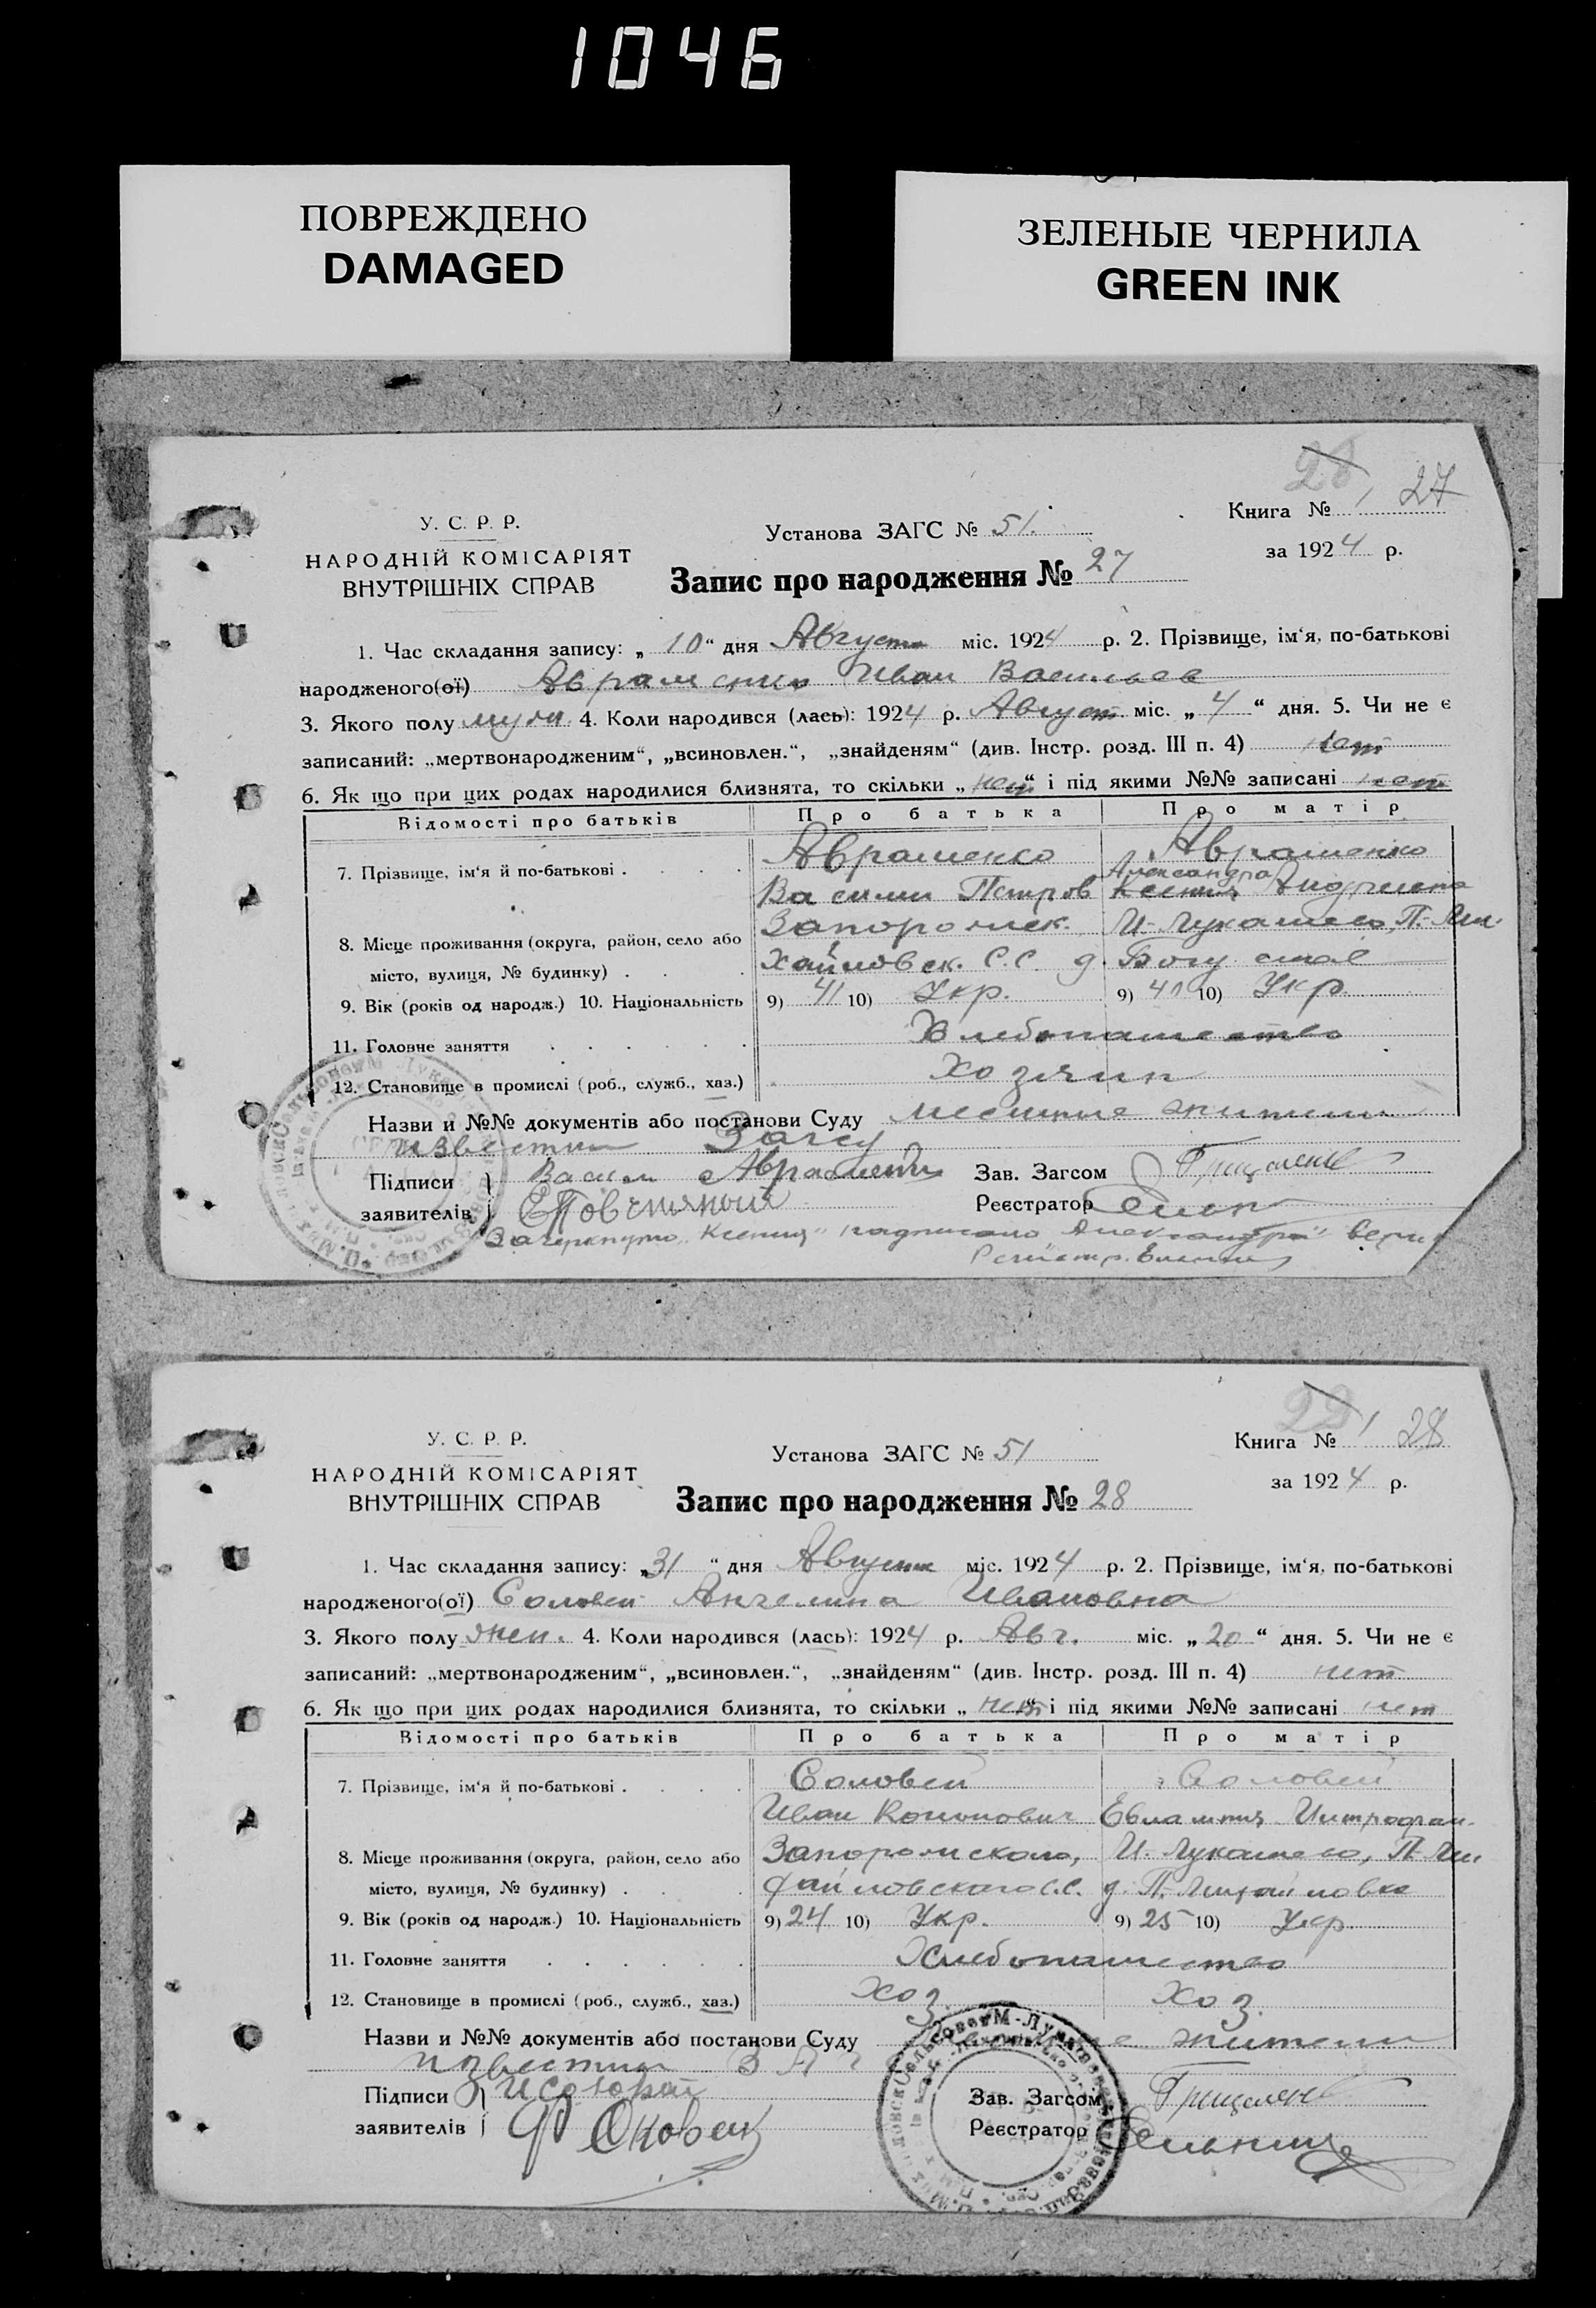 1046
ПОВРЕЖДЕНО
DAMAGED
ЗЕЛЕНЫЕ ЧЕРНИЛА
GREEN INK
28
У. С. Р. Р.
НАРОДНІЙ КОМІСАРІЯТ
ВНУТРІШНІХ СПРАВ
Установа ЗАГС № 51.
Запис про народження № 27
Книга № 27
за 1924 р.
1. Час складання запису: „ 10 “ дня Августа міс. 1924 р. 2. Прізвище, ім‘я, по-батькові
народженого(ої) Авраменко Иван Васильев
3. Якого полу муж. 4. Коли народився (лась): 1924 р. Август міс. „ 4 “ дня. 5. Чи не є
записаний: „мертвонародженим“, „всиновлен.“, „знайденям“ (див. Інстр. розд. III п. 4) нет
6. Як що при цих родах народилися близнята, то скільки „ нет “ і під якими №№ записані нет
Відомості про батьків Про батька Про матір
7. Прізвище, ім‘я й по-батькові . Авраменко Авраменко
Александра
Василий Петров Ксения Андреевна
8. Місце проживання (округа, район, село або Запорожск. И-Лукашево, П.-Ми-
місто, вулиця, № будинку) . хайловск. С.С. д.
9. Вік (років од народж.) 10. Національність 9) 41 10) Укр. 9) 40 10) Укр
11. Головне заняття Хлебопашество
12. Становище в промислі (роб., служб., хаз.) Хозяин
Назви и №№ документів або постанови Суду местные жители
известны Загсу
Підписи Васил Авраменко Зав. Загсом Грищенко
заявителів Реєстратор
Зачеркнуто „Ксения“ надписано „Александра“ верно
Регистр.
28
У. С. Р. Р.
НАРОДНІЙ КОМІСАРІЯТ
ВНУТРІШНІХ СПРАВ
Установа ЗАГС № 51
Запис про народження № 28
Книга №
за 1924 р.
1. Час складання запису: „31 “ дня Августа міс. 1924 р. 2. Прізвище, ім‘я, по-батькові
народженого(ої) Соловей Ангелина Ивановна
3. Якого полу жен. 4. Коли народився (лась): 1924 р. Авг. міс. „ 20 “ дня. 5. Чи не є
записаний: „мертвонародженим“, „всиновлен.“, „знайденям“ (див. Інстр. розд. III п. 4) нет
6. Як що при цих родах народилися близнята, то скільки „ нет “ і під якими №№ записані нет
Відомості про батьків Про батька Про матір
7. Прізвище, ім‘я й по-батькові . Соловей Соловей
Иван Кононович Евлампия Митрофан.
8. Місце проживання (округа, район, село або Запорожского, И. Лукашево, П-Ми
місто, вулиця, № будинку) . хайловского С.С. д. П. Михайловка
9. Вік (років од народж.) 10. Національність 9) 24 10) Укр. 9) 25 10) Укр.
11. Головне заняття Хлебопашество
12. Становище в промислі (роб., служб., хаз.) Хоз. Хоз.
Назви и №№ документів або постанови Суду жители
известны
Підписи
заявителів
Зав. Загсом Грищенко
Реєстратор